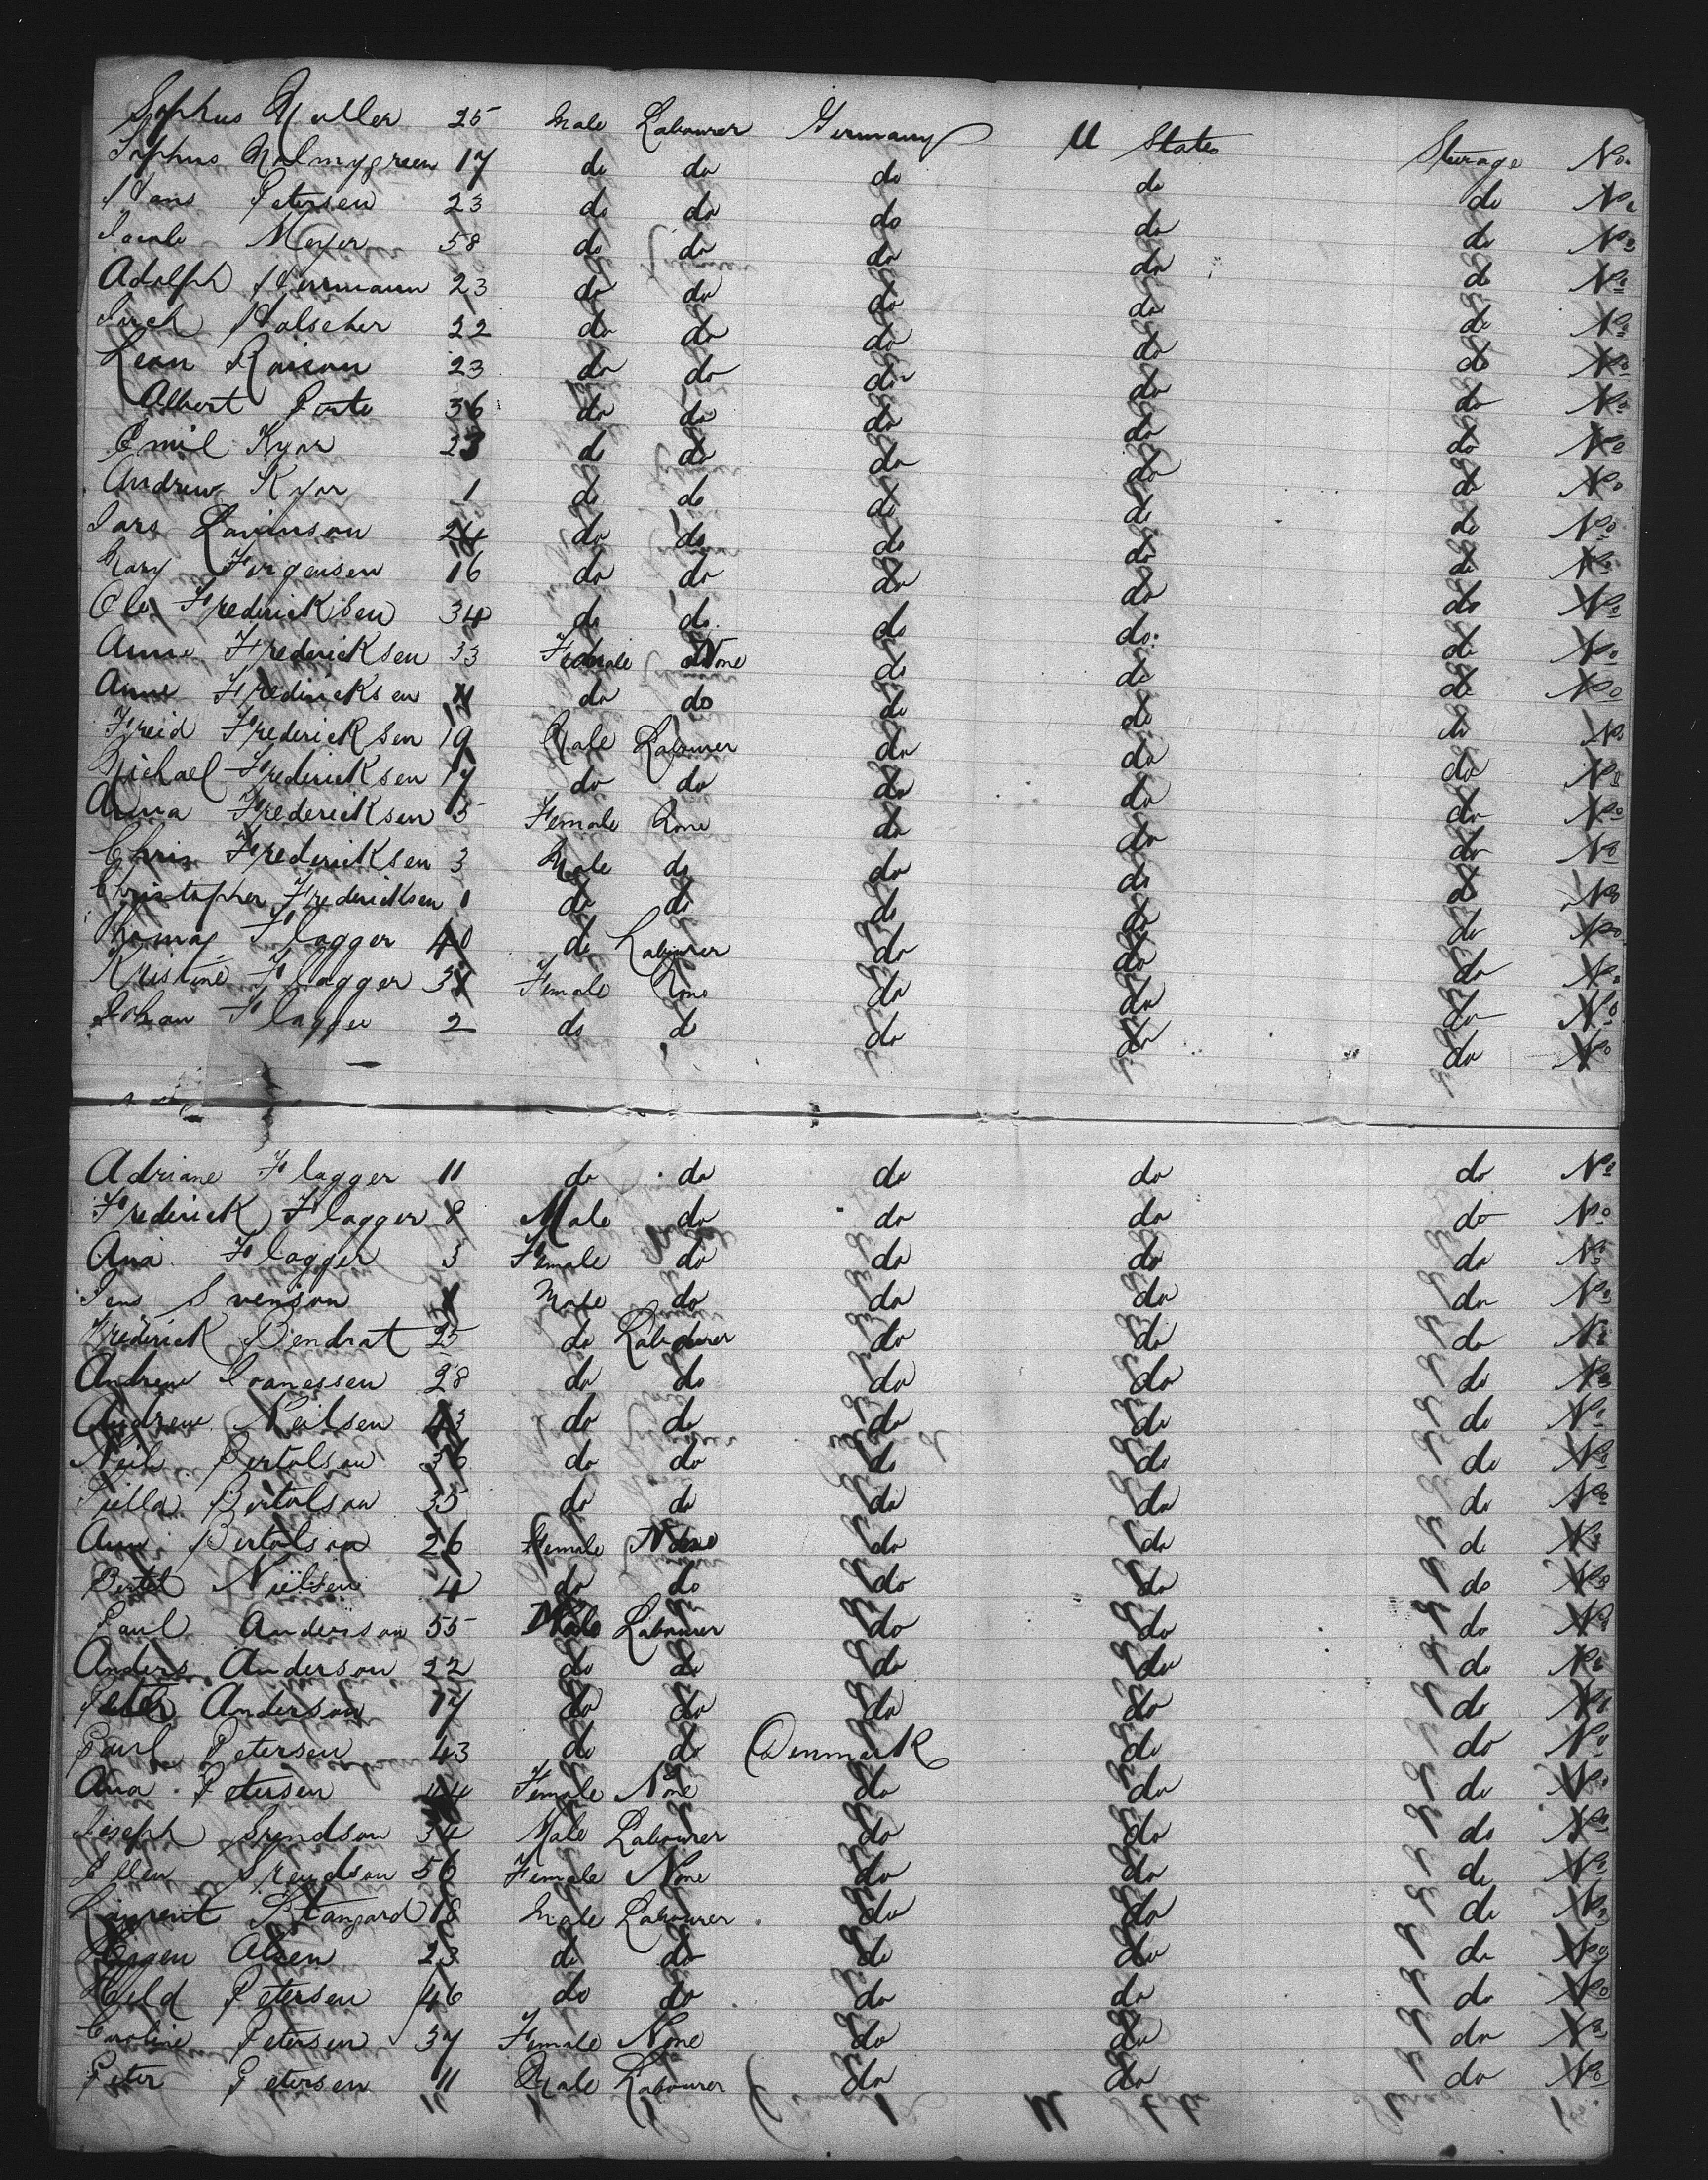 Sophus Muller 25 Male Labourer Germany U States Sturage No.
Sophus Malmygreen 17 do do do do do No
Hans Petersen 23 do do do do do No
Meyer 58 do do do do do No
Adolph Hurmann 23 do do do do do No
Halscher 22 do do do do do No
Leon 23 do do do do do No
Albert Porte 36 do do do do do No
Emil Kyar 23 do do do do do No
Andrew Kyar 1 do do do do do No
Lars 24 do do do do do No
Mary Jorgensen 16 do do do do do No
Ole Fredericksen 34 do do. do do. do No
Anne Fredericksen 33 Female None do do do No
Anne Fredericksen 11 do do do do do No
Freid Fredericksen 19 Male Labourer do do do No
Michael Fredericksen 17 do do do do do No
Anna Fredericksen 5 Female None do do do No
Chris Fredericksen 3 Male do do do do No
Christopher Fredericksen 1 do do do do do No
Thomas Flagger 40 do Labourer do do do No
Kristine Flagger Female None do do do No
Johan Flagger 2 do do do do do No
Adriane Flagger 11 do do do do do No
Frederick Flagger 8 Male do do do do No
Ana Flagger 3 Female do do do do No
Jens Svenson Male do do do do No
Frederick Bendrat 25 do Labourer do do do No
Andrew Joanessen 28 do do do do do No
Andrew Neilsen 43 do do do do do No
Neils Bertolson 36 do do do do do No
Bertolson 35 do do do do do No
Ann Bertolson 26 Female None do do do No
Bertel Nielsen 4 do do do do do No
Paul Anderson 55 Male Labourer do do do No
Anders Anderson 22 do do do do do No
Peter Anderson 17 do do do do do No
Paul Petersen 43 do do Denmark do do No
Ana Petersen 44 Female None do do do No
Joseph Srendson 34 Male Labourer do do do No
Ellen Srendson 56 Female None do do do No
Laurent Stangard 18 Male Labourer do do do No
Jorgen Olsen 23 do do do do do No
Held Petersen 46 do do do do do No
Caroline Petersen 37 Female None do do do No
Peter Petersen 11 Male Labourer do do do No